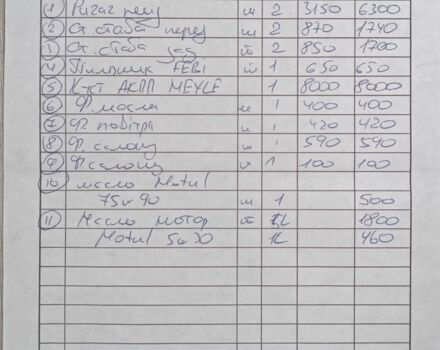 1 Ричаг перед ш 2 3150 6300
2 Ст. стаба перед ш 2 870 1740
3 Ст. стаба зад ш 2 850 1700
4 Пильник FEBI ш 1 650 650
5 К-кт АКПП MEYLE 1 8000 8000
6 Ф. масла ш 1 400 400
7 Ф. повітря ш 1 420 420
8 Ф. салону ш 1 590 590
9 Ф. салону ш 1 100 100
10 масло Motul
75w90 ш 1 500
11 Масло мотор ш L 1800
Motul 5w30 1L 460